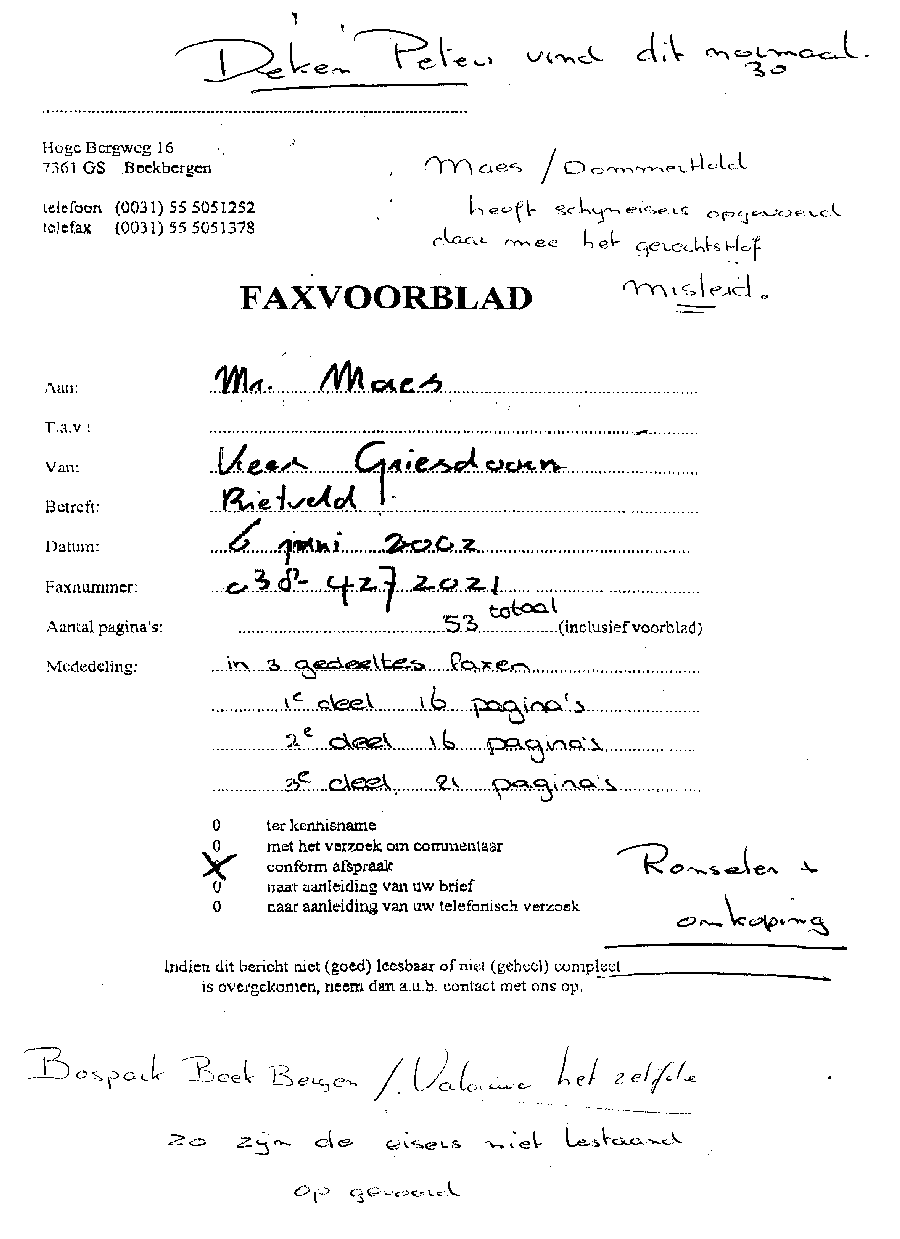 Deken Peters vind dit normaal.
30
Hoge Bergweg 16
7361 GS Beekbergen
telefoon (0031) 55 5051252
telefax (0031) 55 5051378
Maes / Dommerhold
heeft schijneisers opgevoerd
daar mee het gerechtshof
misleid.
FAXVOORBLAD
Aan: Mr. Maes
T.a.v :
Van: Veer Griesdoorn
Betreft: Rietveld
Datum: 6 juni 2002
Faxnummer: 038-4272021
Aantal pagina's: 53 totaal (inclusief voorblad)
Mededeling: in 3 gedeeltes faxen
1e deel 16 pagina's
2e deel 16 pagina's
3e deel 21 pagina's
0 ter kennisname
0 met het verzoek om commentaar
X conform afspraak
0 naar aanleiding van uw brief
0 naar aanleiding van uw telefonisch verzoek
Ronselen +
omkoping
Indien dit bericht niet (goed) leesbaar of niet (geheel) compleet
is overgekomen, neem dan a.u.b. contact met ons op.
Bospark Beek Bergen / het zelfde
zo zijn de eisers niet bestaand
op gevoerd